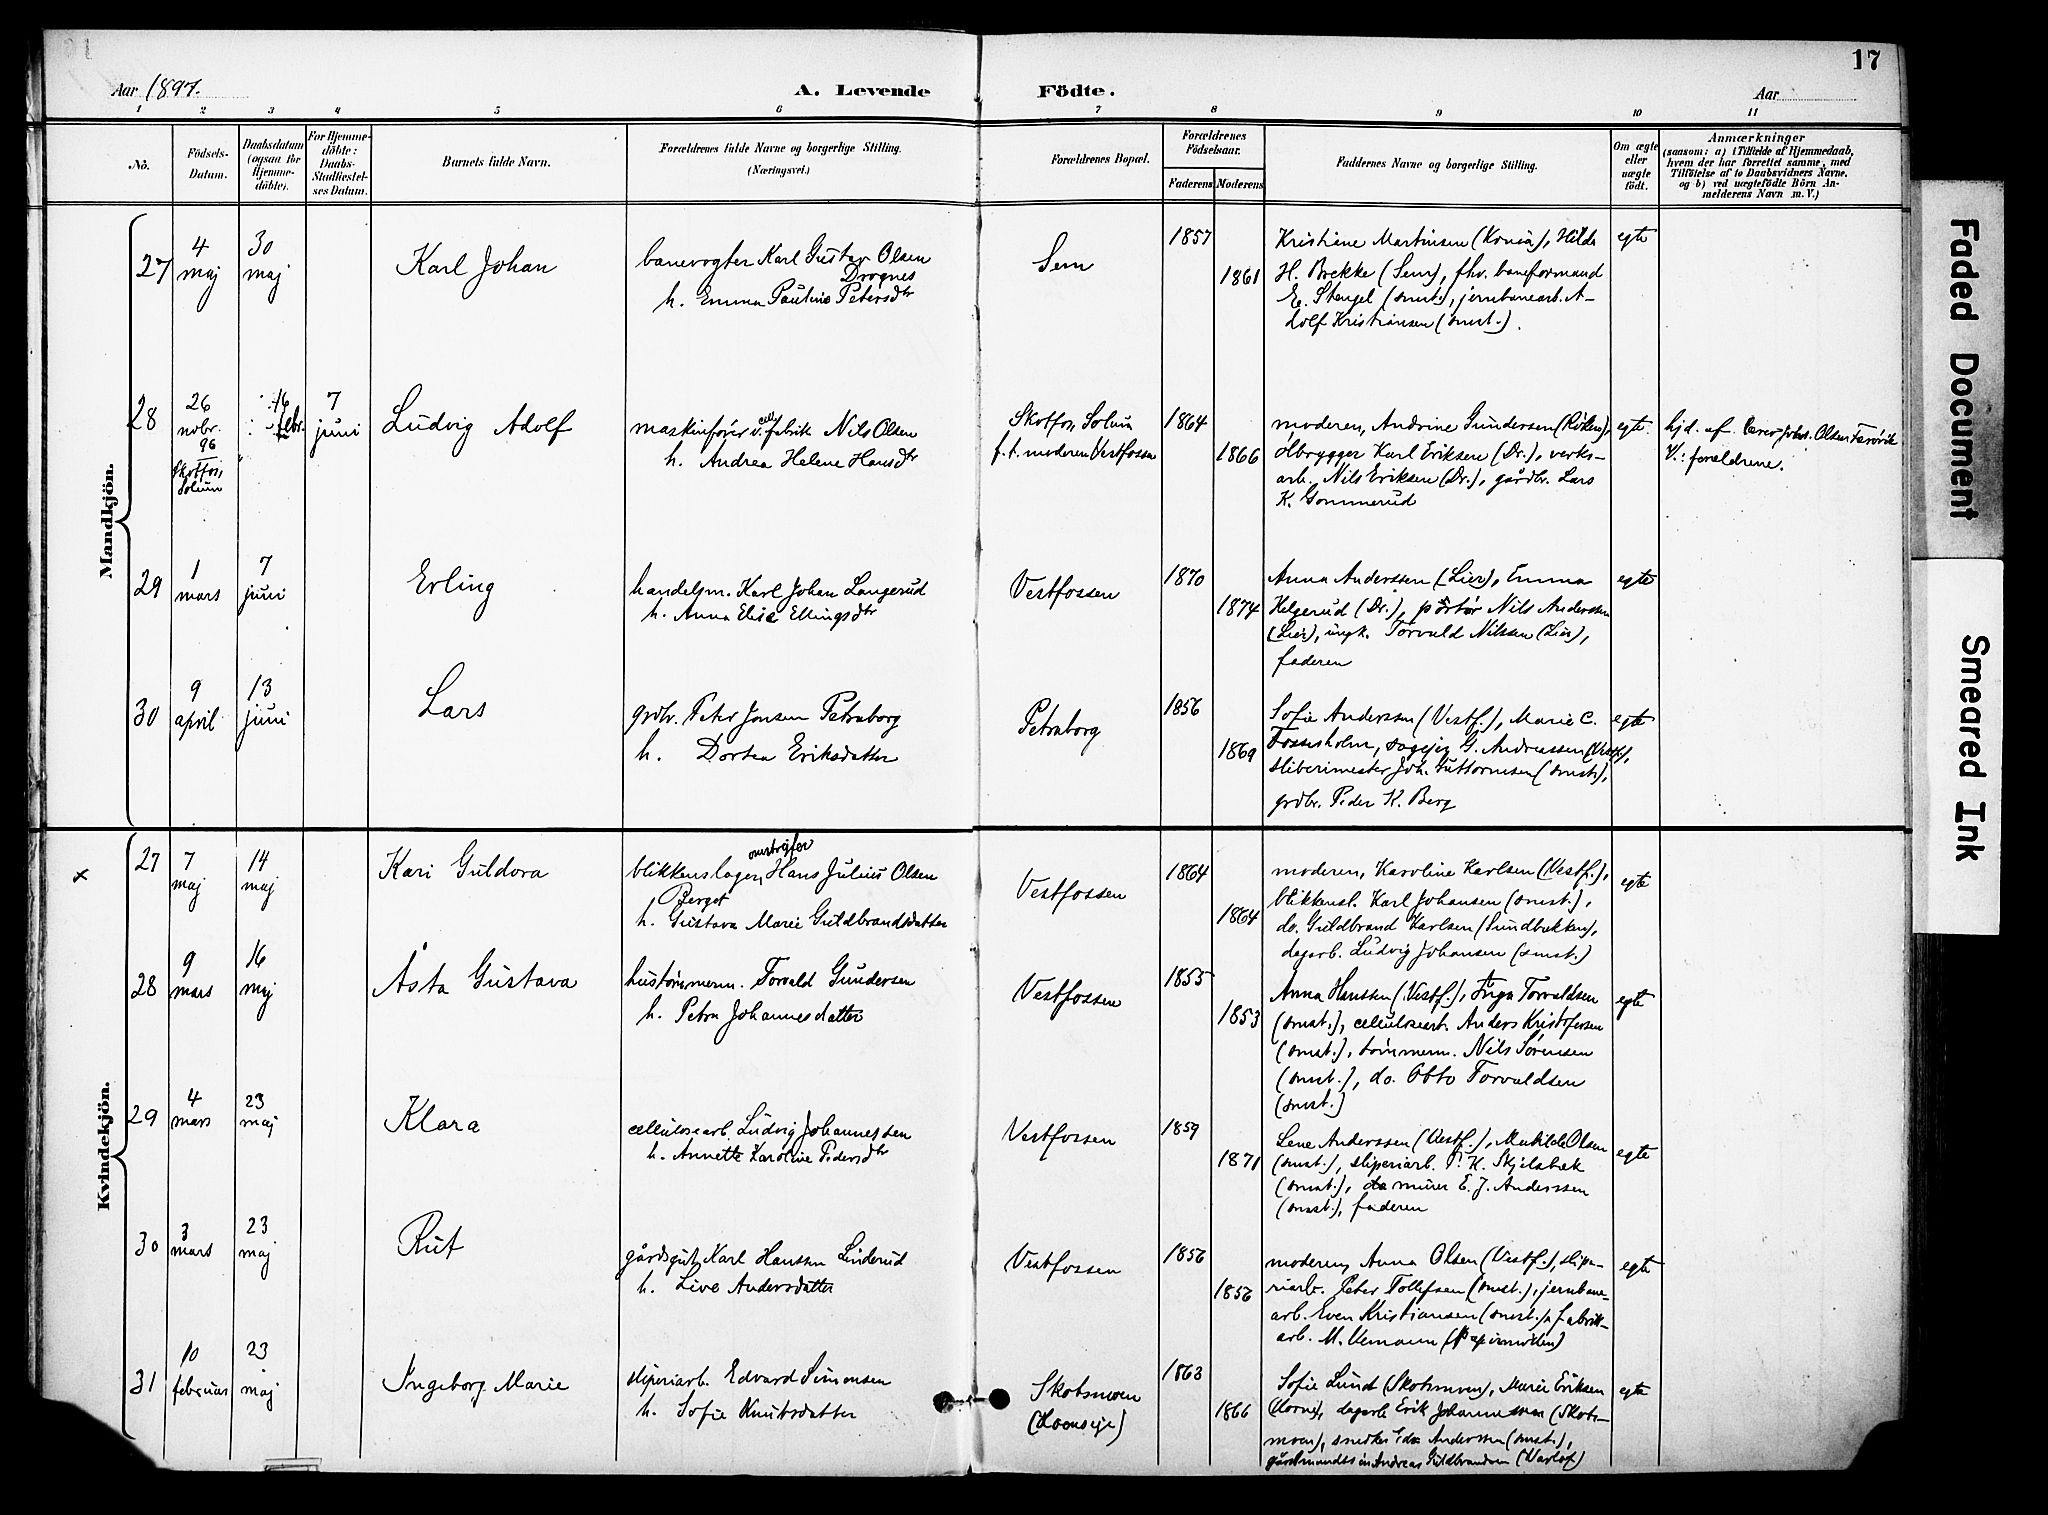 17
Aar 1897.
A. Levende
Födte.
Aar
1 2 3 4 5 6 7 8 9 10 11
No.
Födsels-
Datum.
Daabsdatum
(ogsaa for
Hjemme-
döbte).
For Hjemme-
döbte:
Daabs-
Stadfæstel-
ses Datum.
Barnets fulde Navn.
Forældrenes fulde Navne og borgerlige Stilling.
(Næringsvei.)
Forældrenes Bopæl.
Forældrenes
Födselsaar.
Faderens
Moderens
Faddernes Navne og borgerlige Stilling.
Om ægte
eller
uægte
födt.
Anmærkninger
(saasom: a) i Tilfælde af Hjemmedaab,
hvem der har forrettet samme, med
Tilföielse af to Daabsvidners Navne,
og b) ved uægtefödte Börn An-
melderens Navn m. V.)
Mandkjön.
27
4
maj
30
maj
Karl Johan
banevogter Karl Gustav Olsen
Drognes
h. Emma Pauline Petersdtr
Sem
1857
1861
Kristiane Martinsen (Konia), Hilda
H. Brekke (Sem), fhv. baneformand
E. Stengel (smst.), jernbanearb. A-
dolf Kristiansen (smst.).
egte
28
26
novbr.
96
Skotfos,
Solum
16
febr.
7
juni
Ludvig Adolf
maskinfører v. cell. fabrik Nils Olsen
h. Andrea Helene Hansdtr
Skotfos, Solum
f. t. moderen Vestfossen
1864
1866
moderen, Andrine Gundersen (Röken),
ölbrygger Karl Eriksen (Dr.), verks-
arb. Nils Eriksen (Dr.), gårdbr. Lars
K. Gommerud
egte.
hjd. af lærer Johs. Olsen
V.: forældrene.
29
1
mars
7
juni
Erling
handelsm. Karl Johan Langerud
h. Anna Elise Ellingsdtr
Vestfossen
1870
1874
Anna Anderssen (Lier), Emma
Helgerud (Dr.), portør Nils Anderssen
(Lier), ungk. Torvald Nilssen (Lier),
faderen
egte
30
9
april
13
juni
Lars
grdbr. Peter Jensen Petraborg
h. Dortea Eriksdatter
Petraborg
1856
1869
Sofie Anderssen (Vestf.), Marie C.
Fossesholm, sagejer G. Andreassen (Vestf.),
sliberimester Joh. Guttormsen (smst.),
grdbr. Peder K. Berg
egte
Kvindekjön.
×
27
7
maj
14
maj
Kari Guldora
omstreifer
blikkenslager, Hans Julius Olsen
Berget
h. Gustava Marie Guldbrandsdatter
Vestfossen
1864
1864
moderen, Karoline Karlsen (Vestf.),
blikkensl. Karl Johansen (smst.),
do. Guldbrand Karlsen (Sundbakken),
dagarb. Ludvig Johansen (smst.)
egte
28
9
mars
16
maj
Åsta Gustava
hustömmerm. Torvald Gundersen
h. Petra Johannesdatter
Vestfossen
1855
1853
Anna Hanssen (Vestf.), Inga Torvaldsen
(smst.), cellulosearb. Anders Kristofersen
(smst.), tömmerm. Nils Sörensen
(smst.), do. Otto Torvaldsen
(smst.)
egte
29
4
mars
23
maj
Klara
cellulosearb. Ludvig Johannessen
h. Annette Karoline Pedersdtr
Vestfossen
1859
1871
Lene Anderssen (Vestf.), Matilde Olsen
(smst.), sliperiarb. P. K. Skjelsbæk
(smst.), murer E. J. Anderssen
(smst.), faderen
egte
30
3
mars
23
maj
Rut
gårdsgut Karl Hanssen Linderud
h. Live Andersdatter
Vestfossen
1856
1856
moderen, Anna Olsen (Vestf.), slipe-
riarb. Peter Tollefsen (smst.), jernbane-
arb. Even Kristiansen (smst.), fabrik-
arb. M. Uemann (Papirmöllen)
egte
31
10
februar
23
maj
Ingeborg Marie
sliperiarb. Edvard Simonsen
h. Sofie Knutsdatter
Skotsmoen
(Loeseje)
1863
1866
Sofie Lund (Skotsmoen), Marie Eriksen
(Horne), dagarb. Erik Johannessen (Skots-
moen), snedker Anderssen (smst.),
gårdmandssön Andreas Guldbrandsen (Varlo)
egte
Faded Document
Smeared Ink